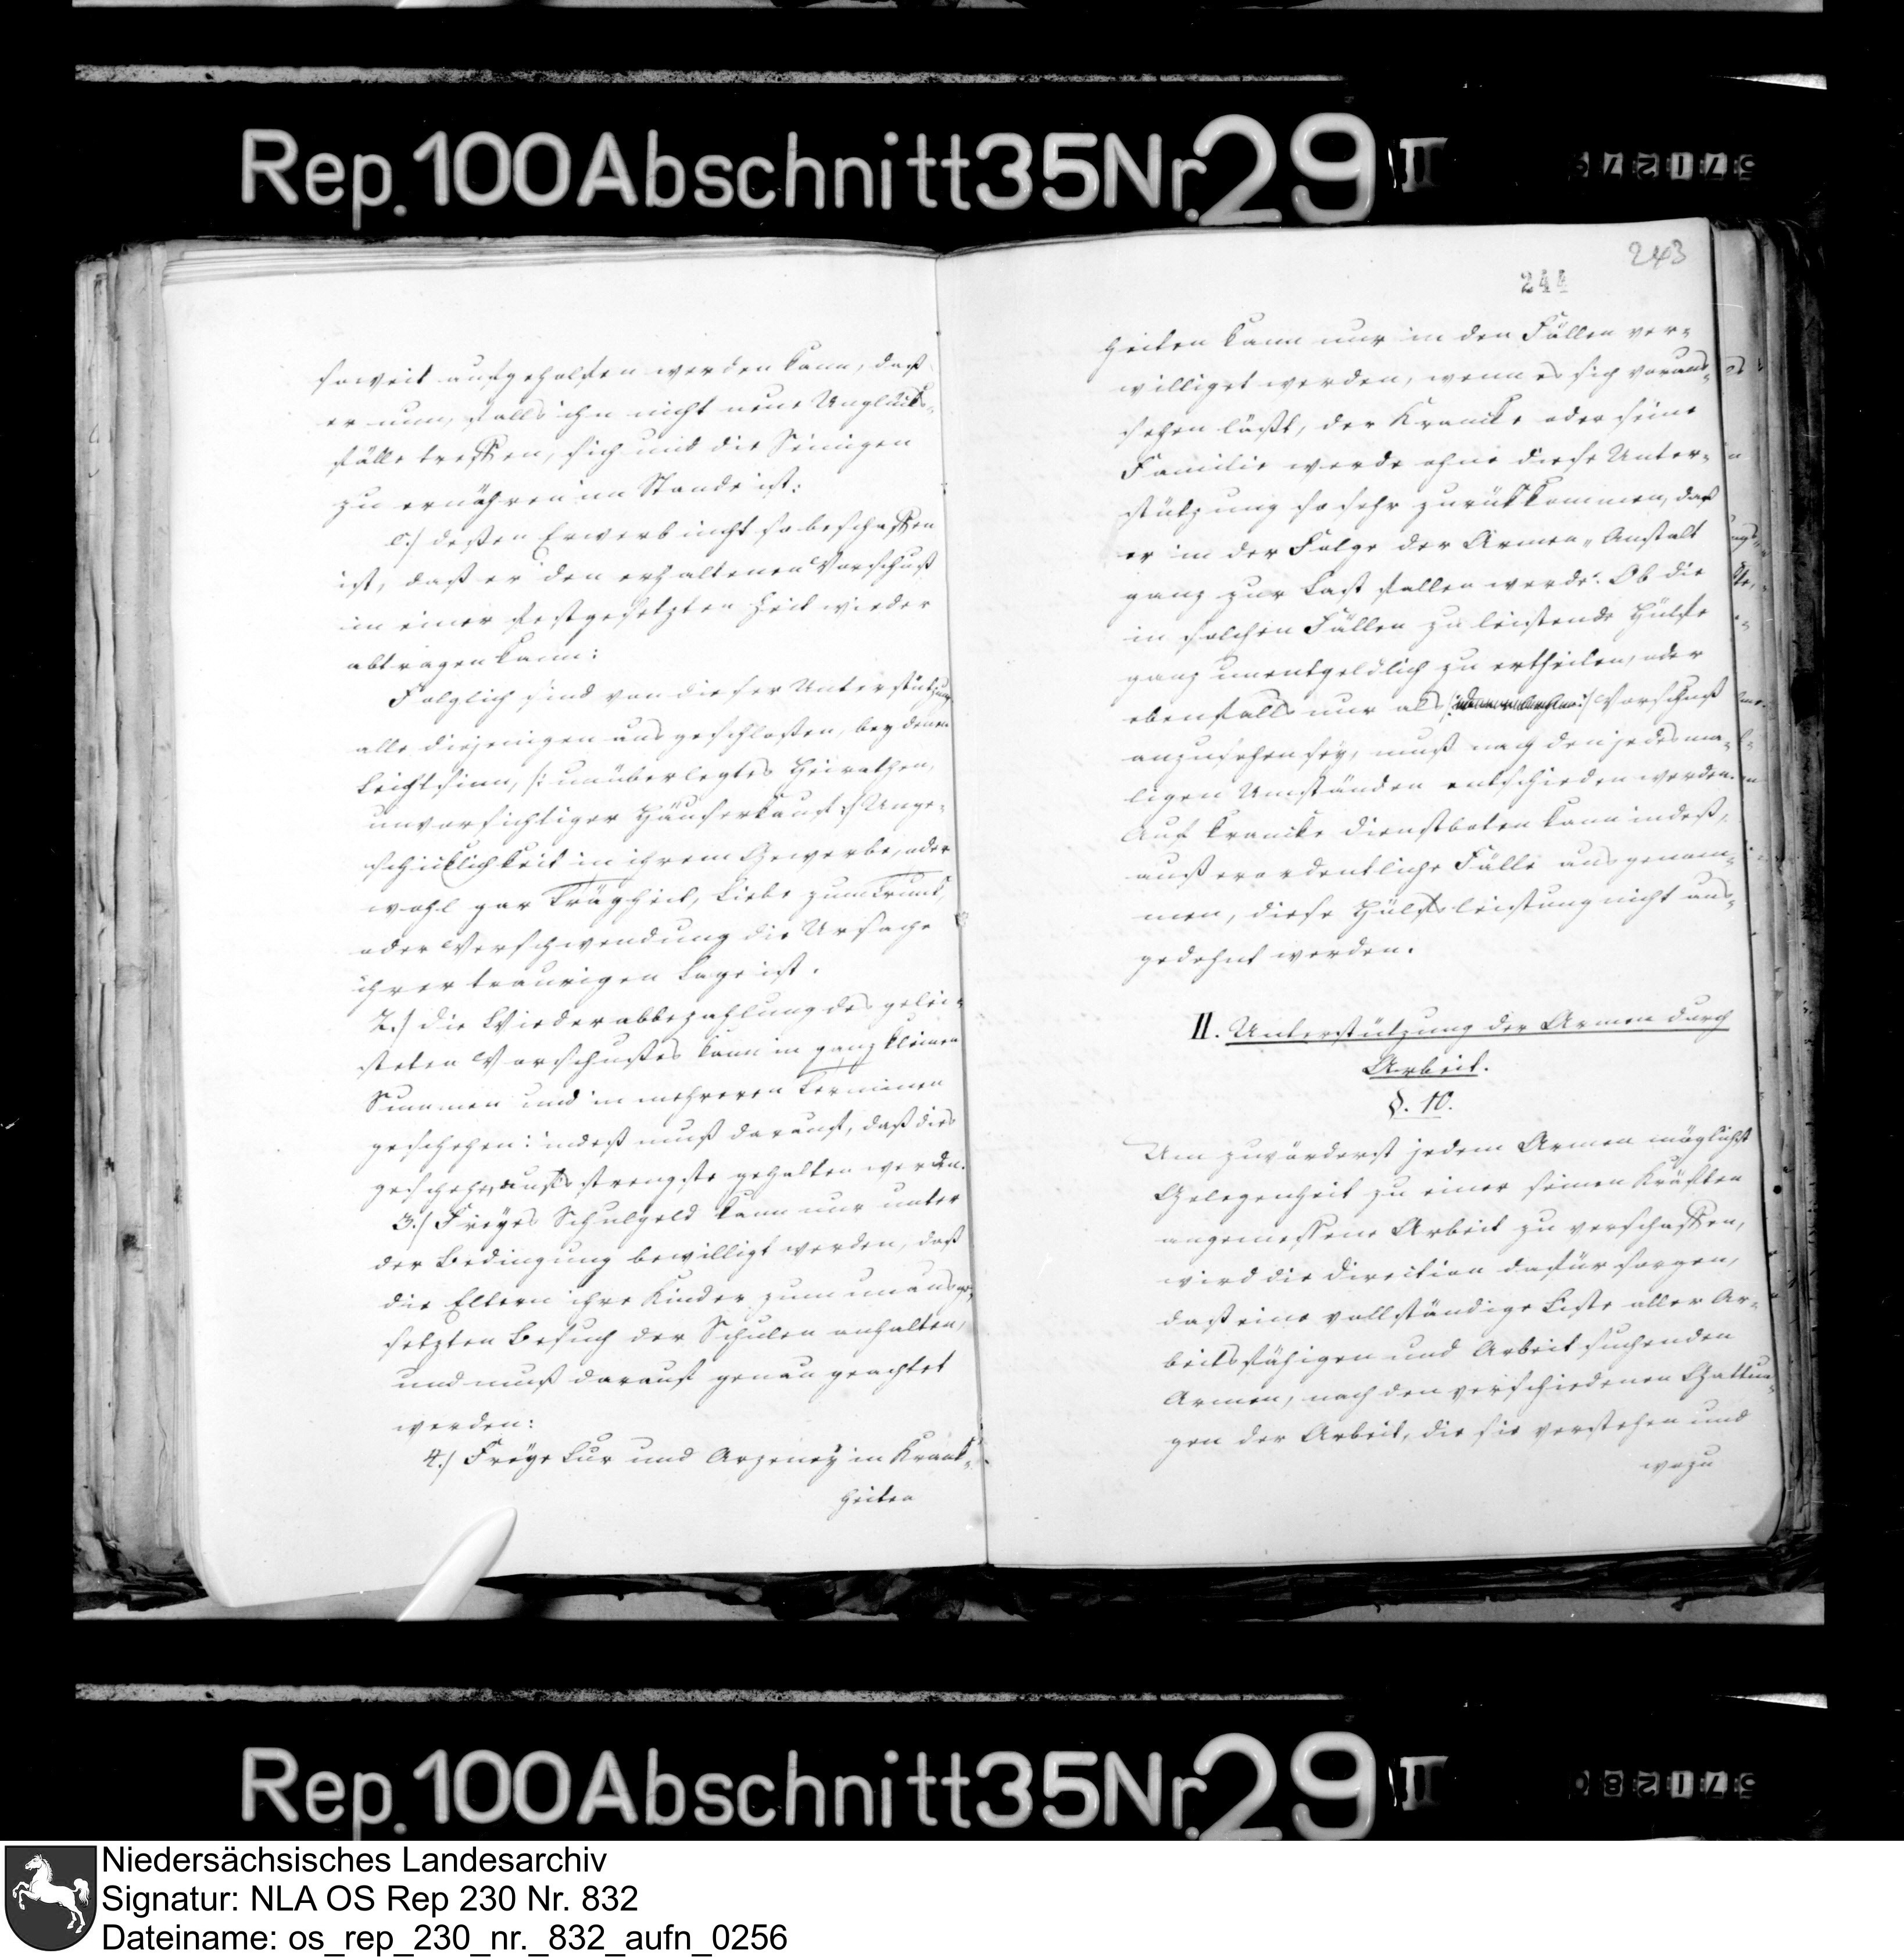 Rep. 100 Abschnitt 35 Nr. 29 II
57127
soweit aufgeholfen werden kann, daß
er nun, falls ihn nicht neue Unglücks-
fälle treffen, sich und die Seinigen
zu ernähren im Stande ist:
c.) deßen Erwerb nicht so beschaffen
ist, daß er den erhaltenen Vorschuß
in einer festgesetzten Zeit wieder
abtragen kann:
Folglich sind von dieser Unterstützung
alle diejenigen ausgeschloßen, bey denen
Leichtsinn, /: unüberlegtes Heirathen,
unvorsichtiger Häuserkauf :/ Unge-
schicklichkeit in ihrem Gewerbe, oder
wohl gar Trägheit, Liebe zum Trunk,
oder Verschwendung die Ursache
ihrer traurigen Lage ist.
2.) die Wiederabbezahlung des gelei-
steten Vorschußes kann in ganz kleinen
Summen und in mehreren Terminen
geschehen: indeß muß darauf, daß dies
geschehe, aufs strengste gehalten werden.
3.) Freyes Schulgeld kann nur unter
der Bedingung bewilligt werden, daß
die Eltern ihre Kinder zum unausge-
setzten Besuch der Schulen anhalten,
und muß darauf genau geachtet
werden:
4.) Freye Cur und Arzeney in Krank-
heiten
243
244
heiten kann nur in den Fällen ver-
williget werden, wenn es sich voraus-
sehen läßt, der Krancke oder seine
Familie werde ohne diese Unter-
stützung so sehr zurükkommen, daß
er in der Folge der Armen-Anstalt
ganz zur Last fallen werde. Ob die
in solchen Fällen zu leistende Hülfe
ganz unentgeldlich zu ertheilen, oder
ebenfalls nur als Vorschuß
anzusehen sey, muß nach den jedesma-
ligen Umständen entschieden werden.
Auf krancke Dienstboten kann indeß,
außerordentliche Fälle ausgenom-
men, diese Hülfsleistung nicht aus-
gedehnt werden.
II. Unterstützung der Armen durch
Arbeit.
§. 10.
Um zuvörderst jedem Armen möglichst
Gelegenheit zu einer seinen Kräften
angemessene Arbeit zu verschaffen,
wird die Direction dafür sorgen,
daß eine vollständige Liste aller Ar-
beitsfähigen und Arbeit suchenden
Armen, nach den verschiedenen Gattun-
gen der Arbeit, die sie verstehen und
wozu
Rep. 100 Abschnitt 35 Nr. 29 II
571280
Niedersächsisches Landesarchiv
Signatur: NLA OS Rep 230 Nr. 832
Dateiname: os_rep_230_nr._832_aufn_0256